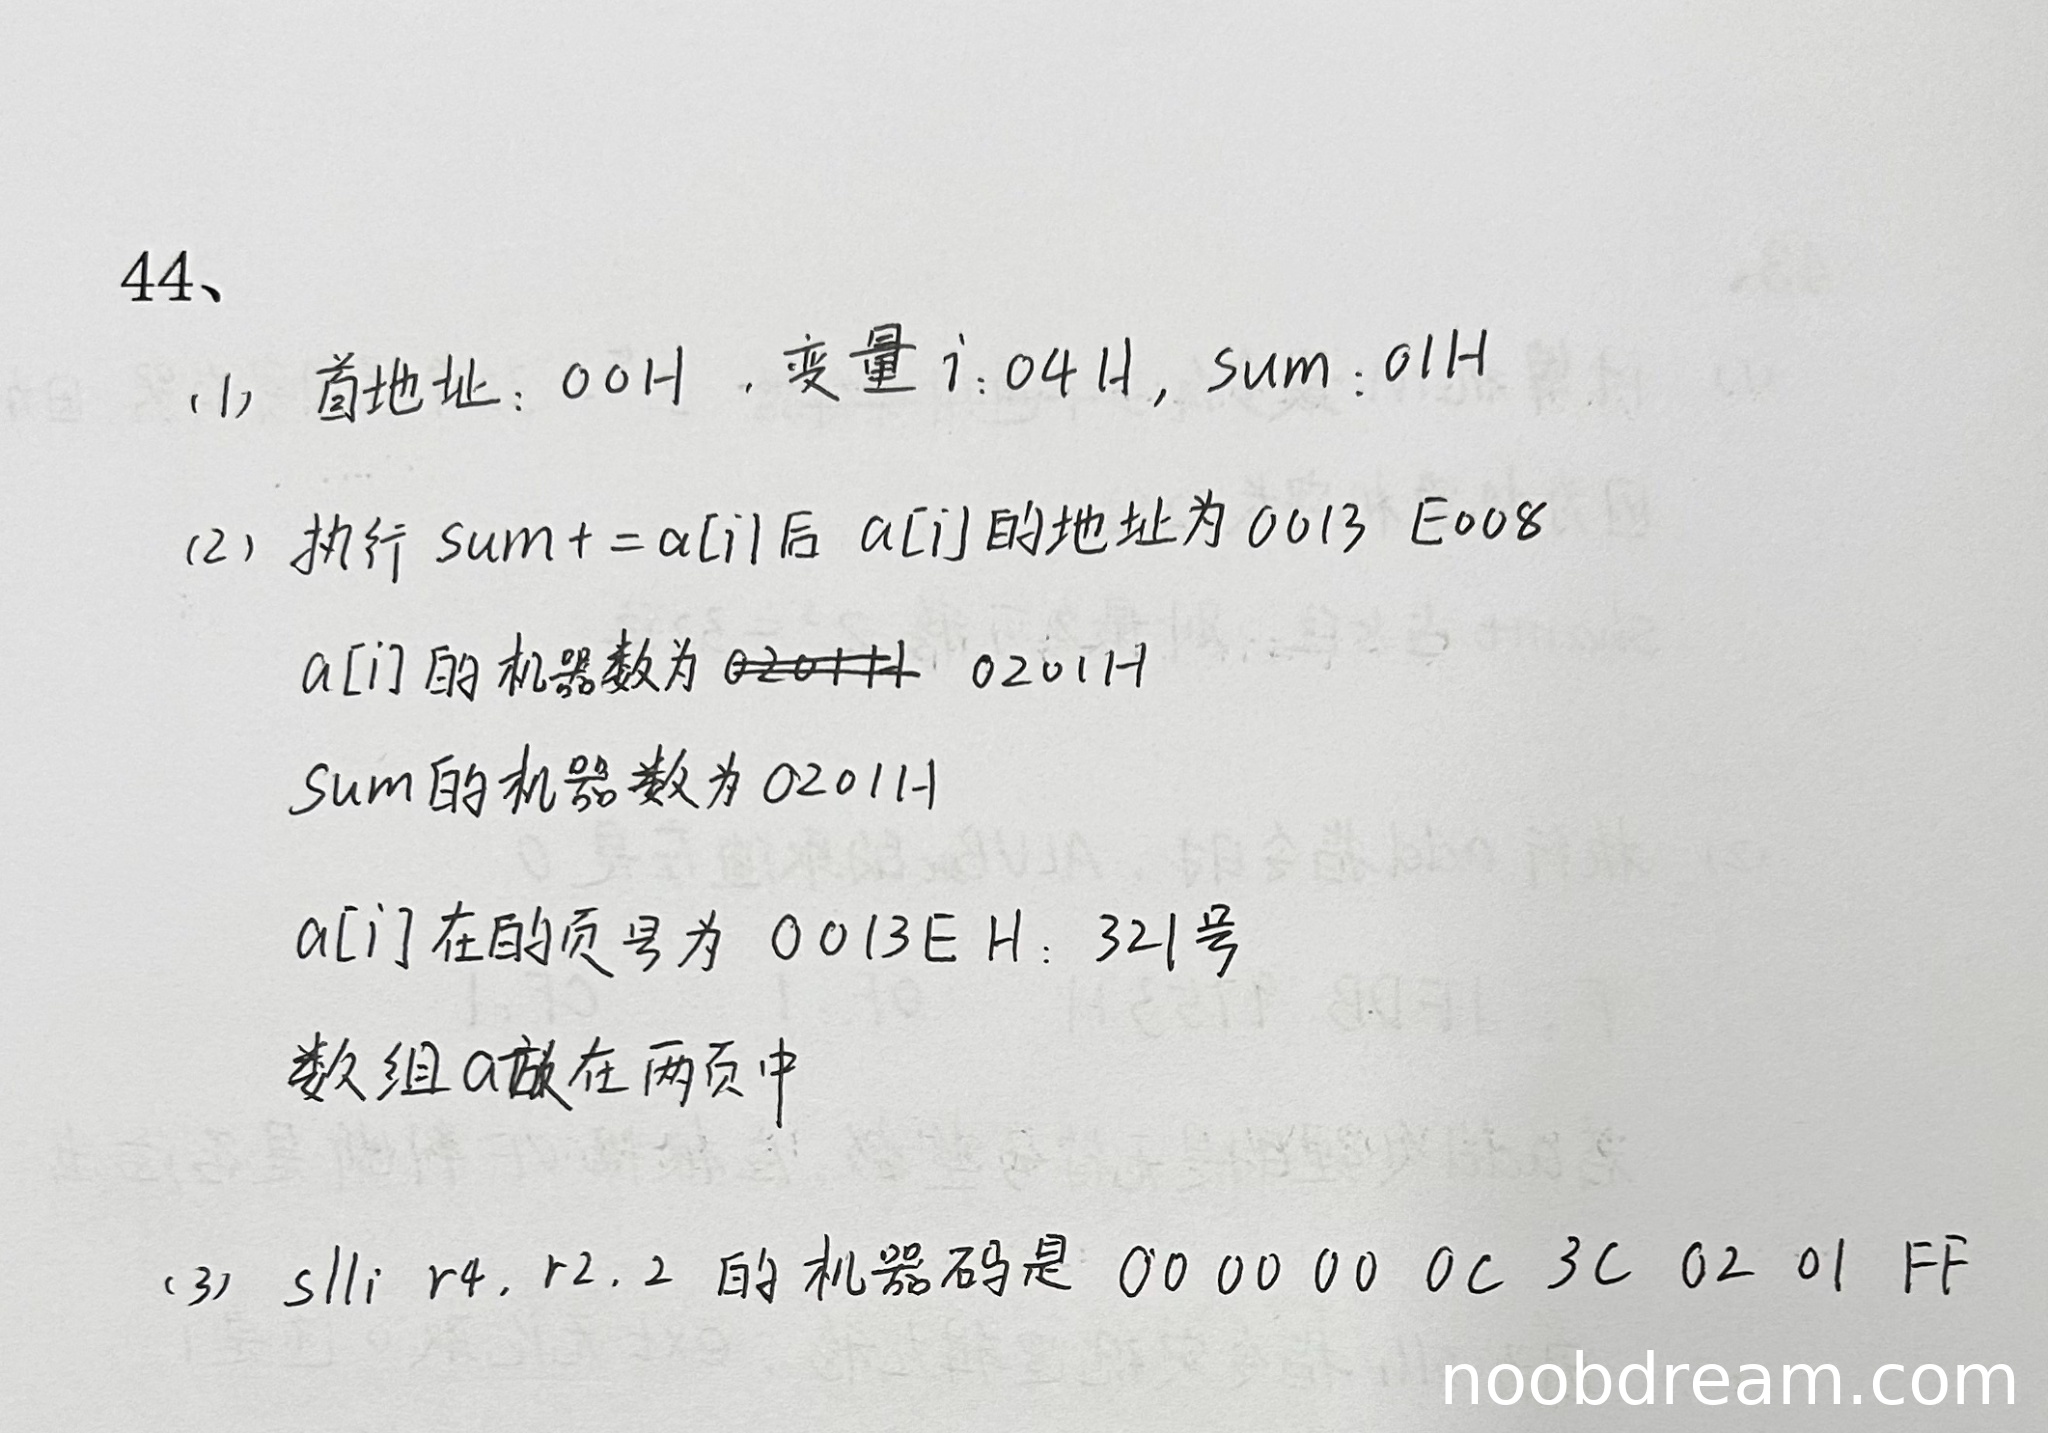 44、
(1) 首地址：00H ，变量i：04H，sum：01H
(2) 执行 sum+=a[i]后 a[i]的地址为0013 E008
a[i]的机器数为 0201H 0201H
sum的机器数为0201H
a[i]在的页号为 0013E H：321号
数组a放在两页中
(3) slli r4, r2, 2 的机器码是 00 00 00 0C 3C 02 01 FF
noobdream.com